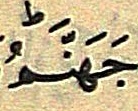 جَهَنَّمُؕ